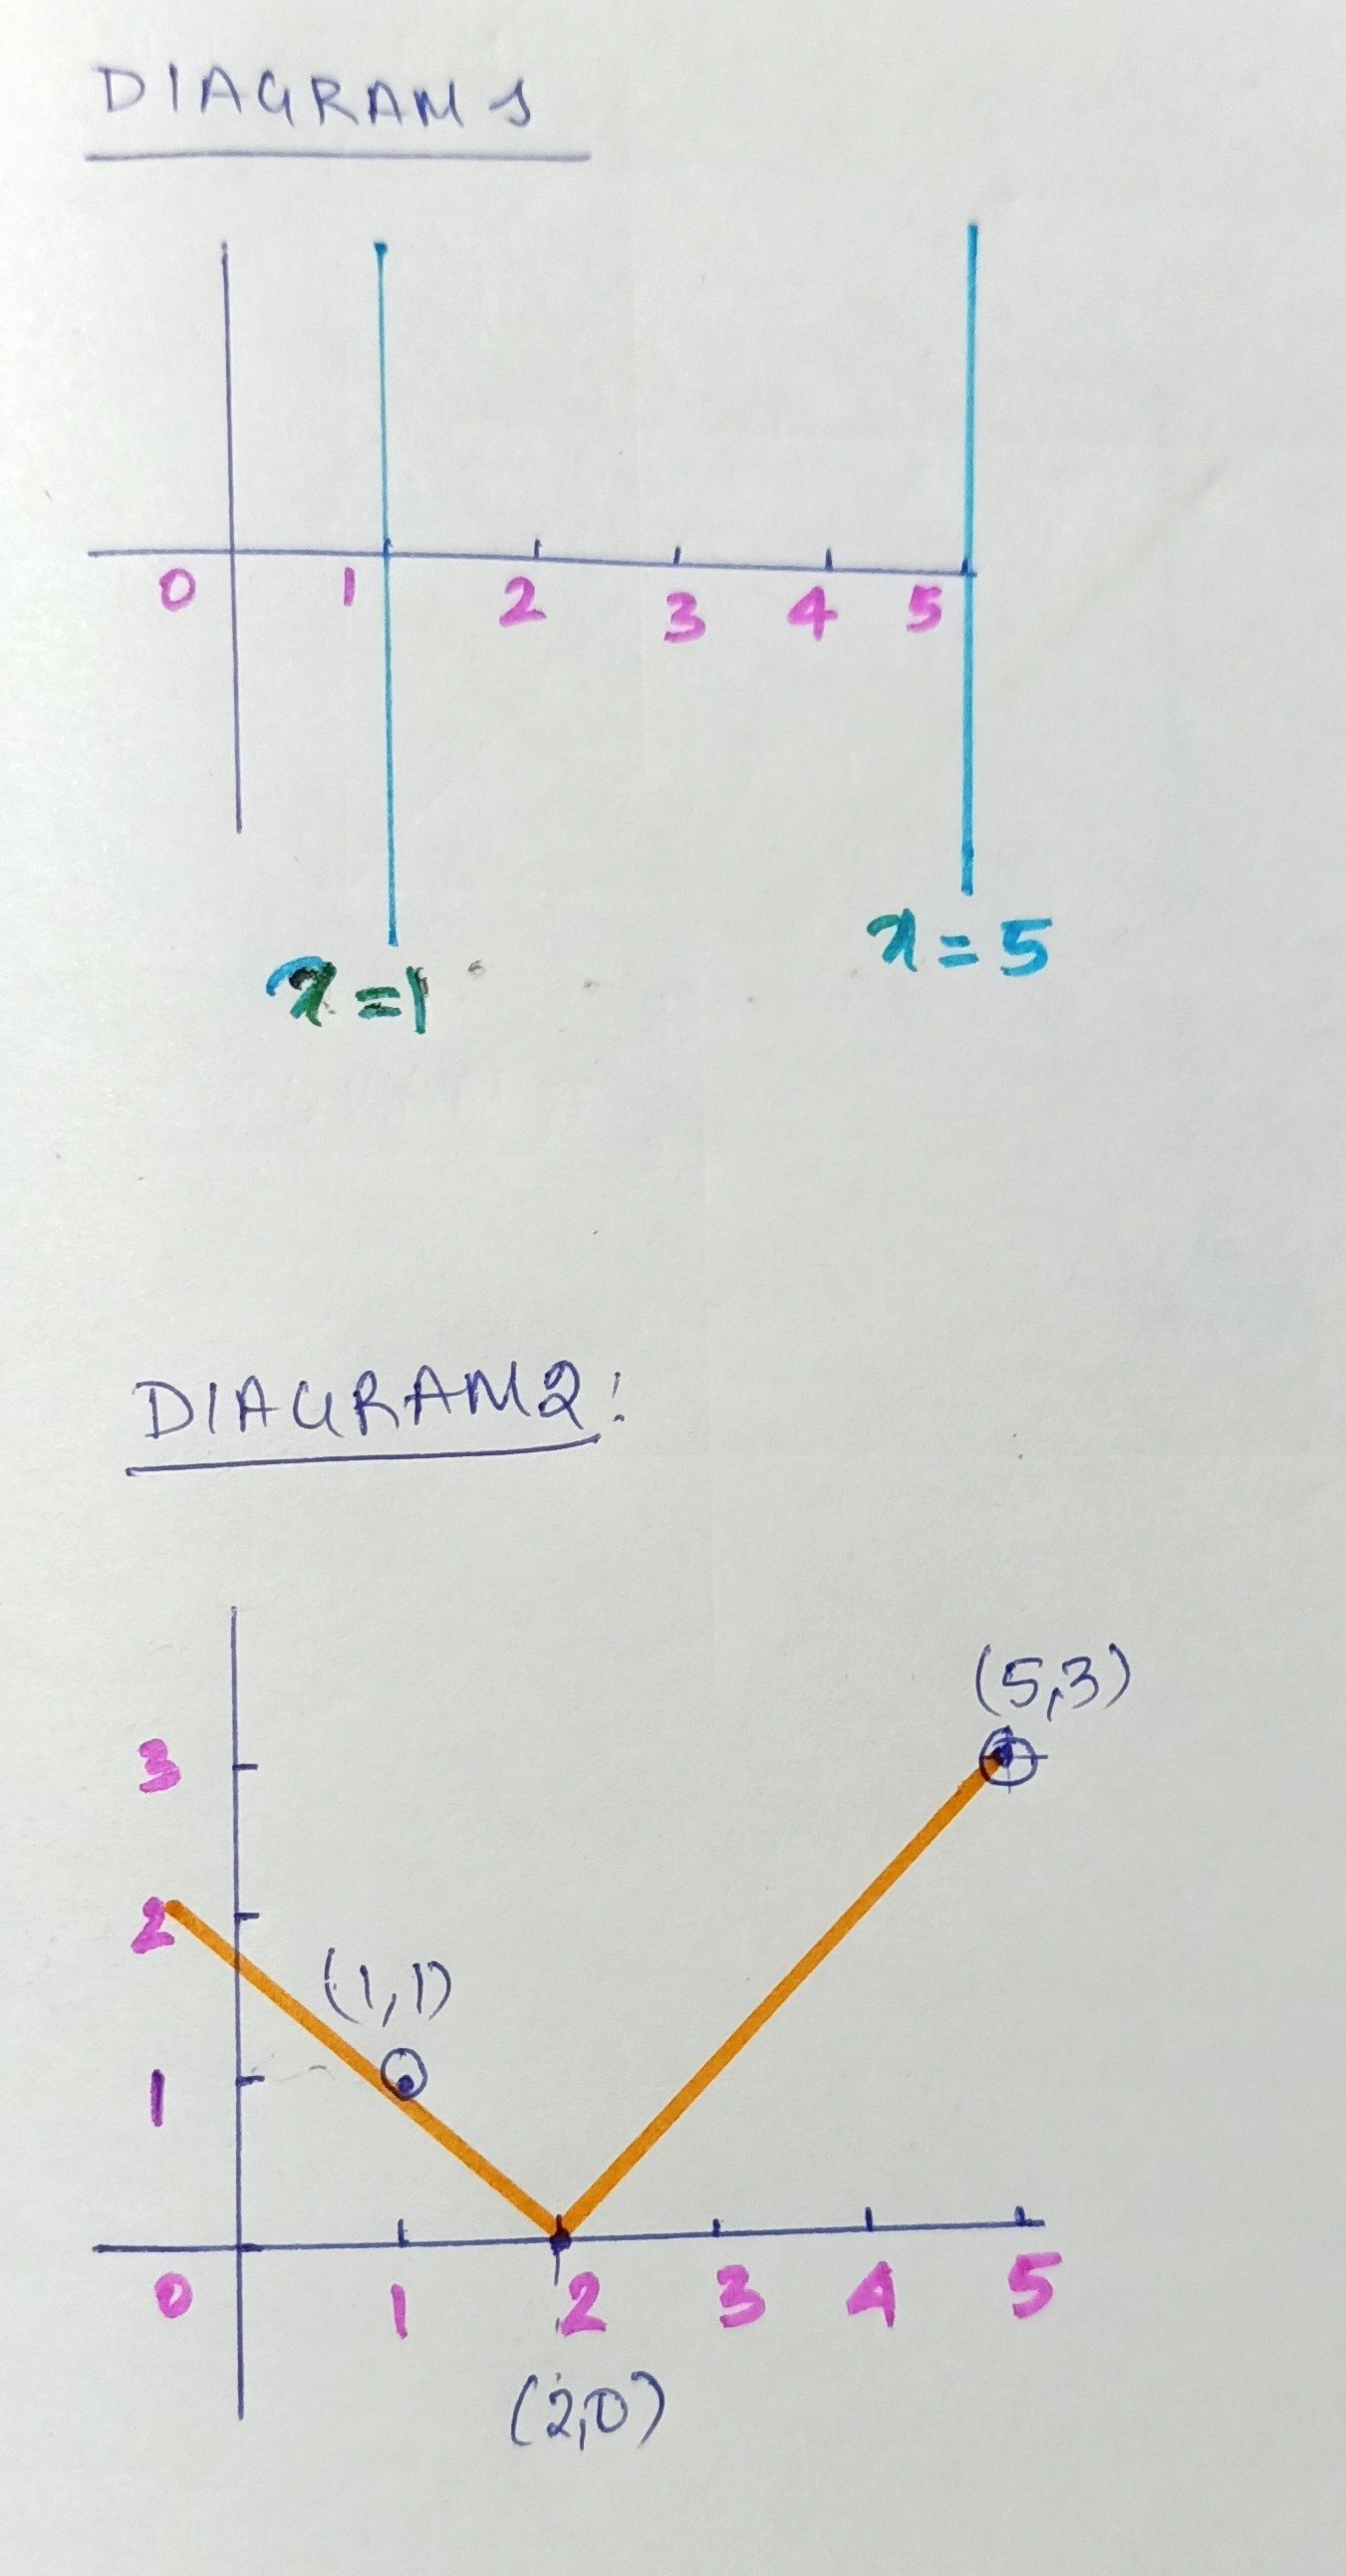 DIAGRAM 1
0 1 2 3 4 5
x=1 x=5
DIAGRAM 2:
(5,3)
3
2
(1,1)
1
0 1 2 3 4 5
(2,0)